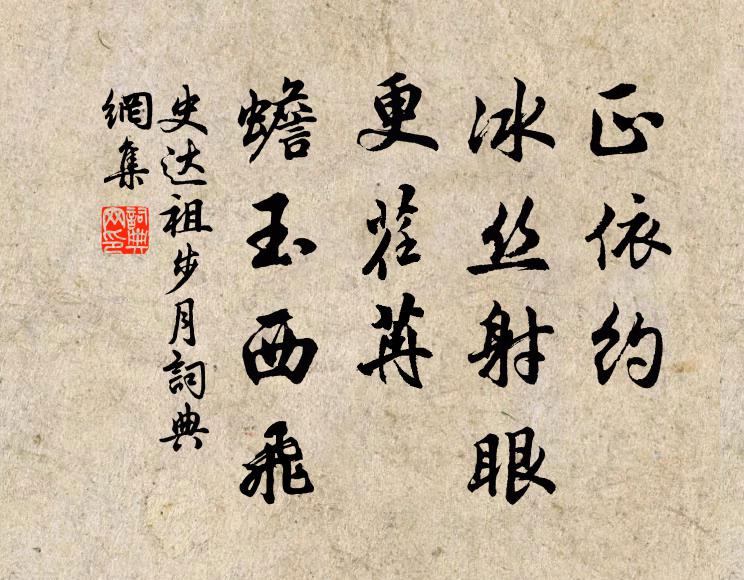 正依约
冰丝射眼
更荏苒
蟾玉西飛
史达祖步月詞典
網集
詞典
网印